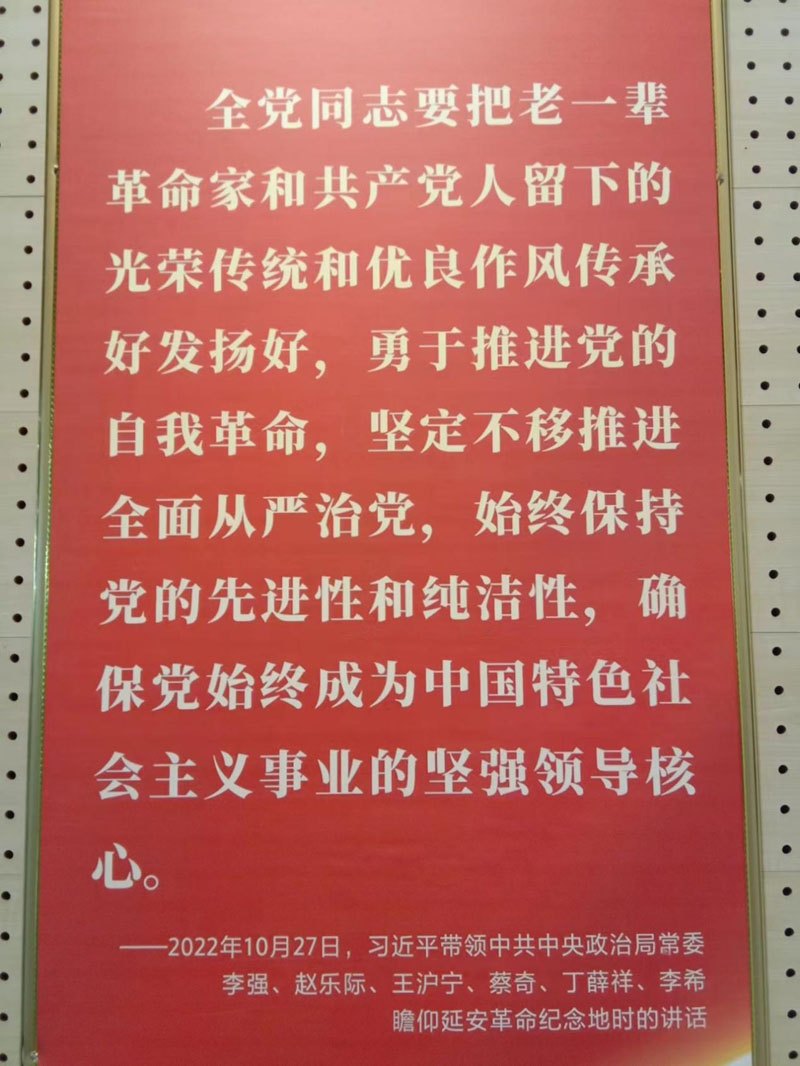 全党同志要把老一辈
革命家和共产党人留下的
光荣传统和优良作风传承
好发扬好，勇于推进党的
自我革命，坚定不移推进
全面从严治党，始终保持
党的先进性和纯洁性，确
保党始终成为中国特色社
会主义事业的坚强领导核
心。
——2022年10月27日，习近平带领中共中央政治局常委
李强、赵乐际、王沪宁、蔡奇、丁薛祥、李希
瞻仰延安革命纪念地时的讲话